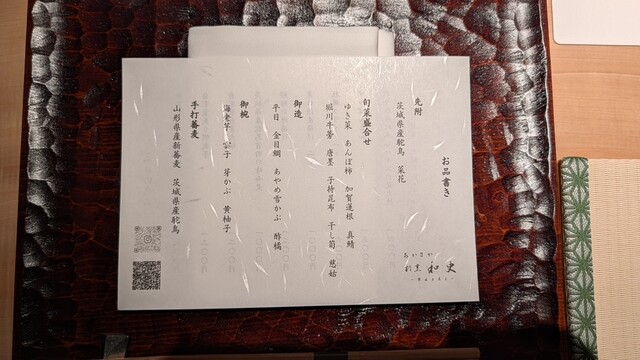 お品書き
先附
茨城県産鴕鳥 菜花
旬菜盛合せ
ゆき菜 あんぽ柿 加賀蓮根 真鯖
堀川牛蒡 唐墨 子持昆布 干し筍 慈姑
御造
平目 金目鯛 あやめ雪かぶ 酢橘
御椀
海老芋 雲子 芽かぶ 黄柚子
手打蕎麦
山形県産新蕎麦 茨城県産鴕鳥
和更